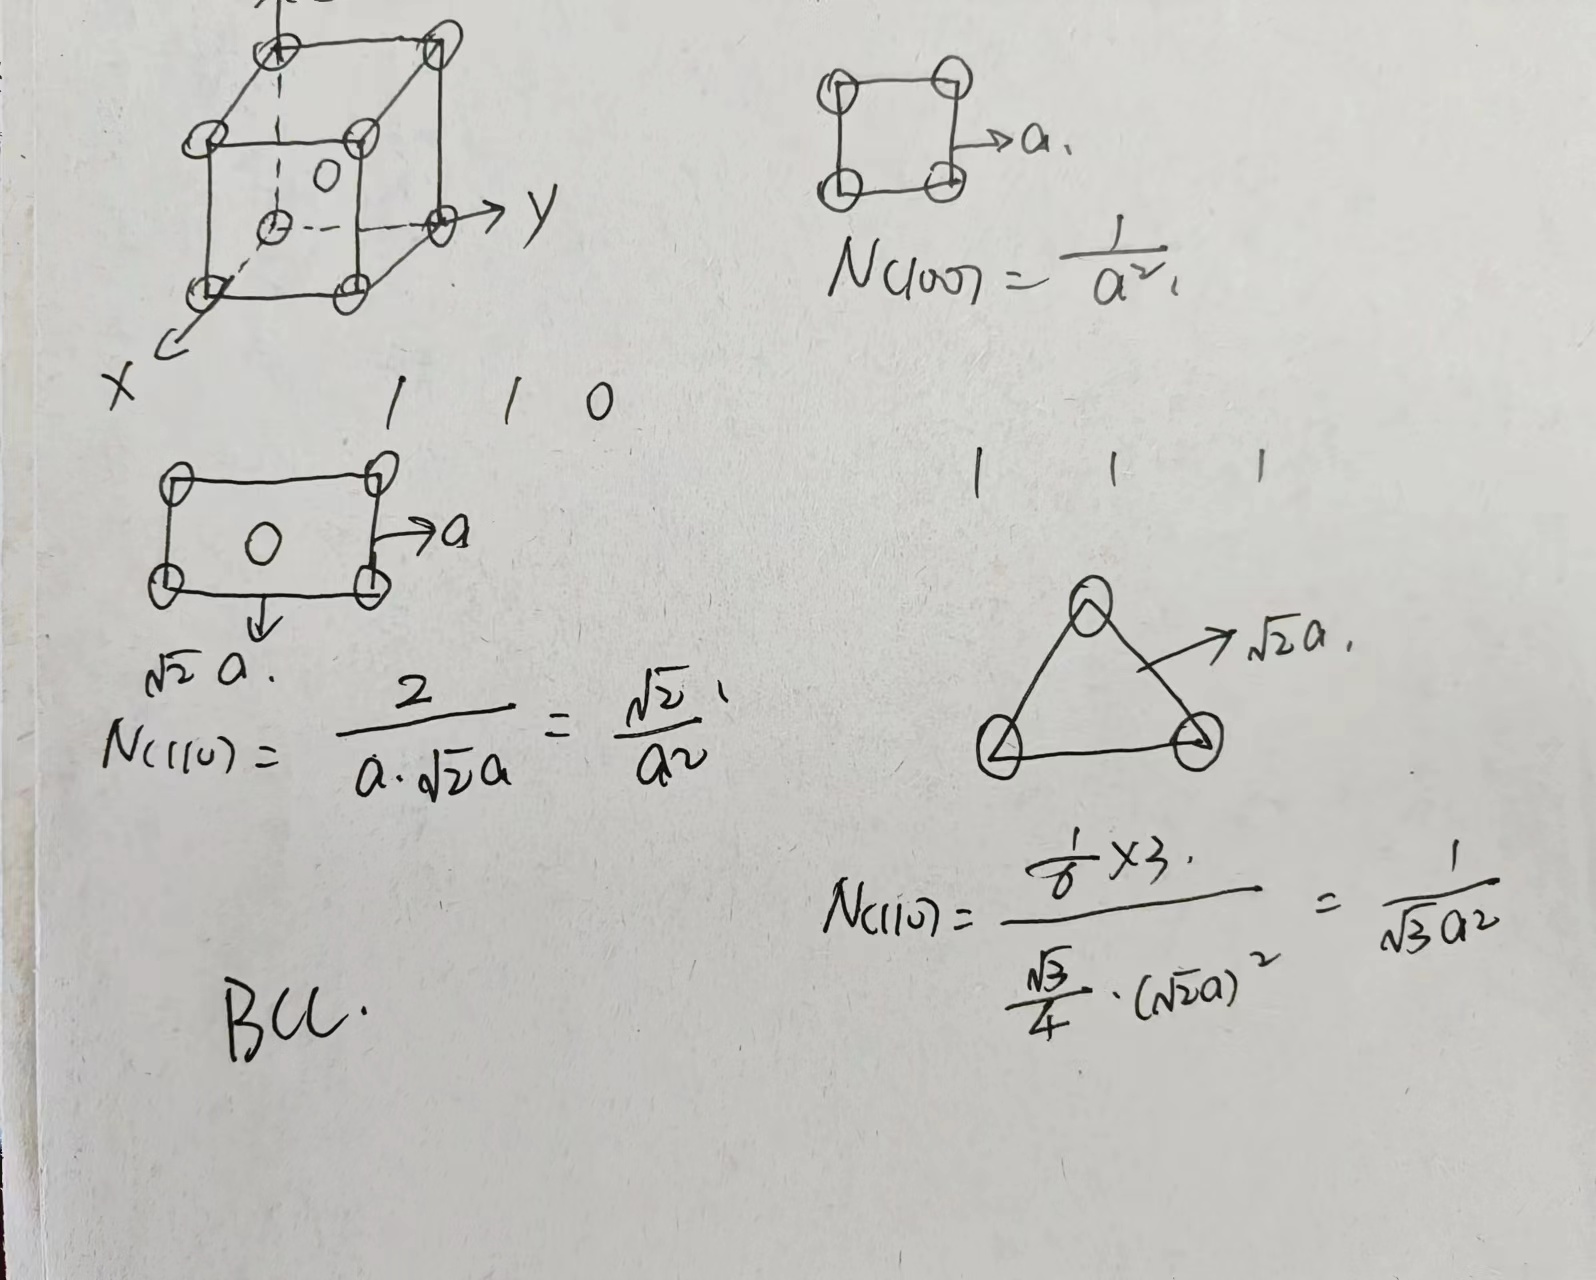 y
x
a.
N(100) = 1/a².
1 1 0
a
√2 a.
N(110) = 2/(a·√2a) = √2/a²
1 1 1
√2a.
N(110) = (1/6 ×3.)/(√3/4 · (√2a)²) = 1/(√3a²)
BCC.